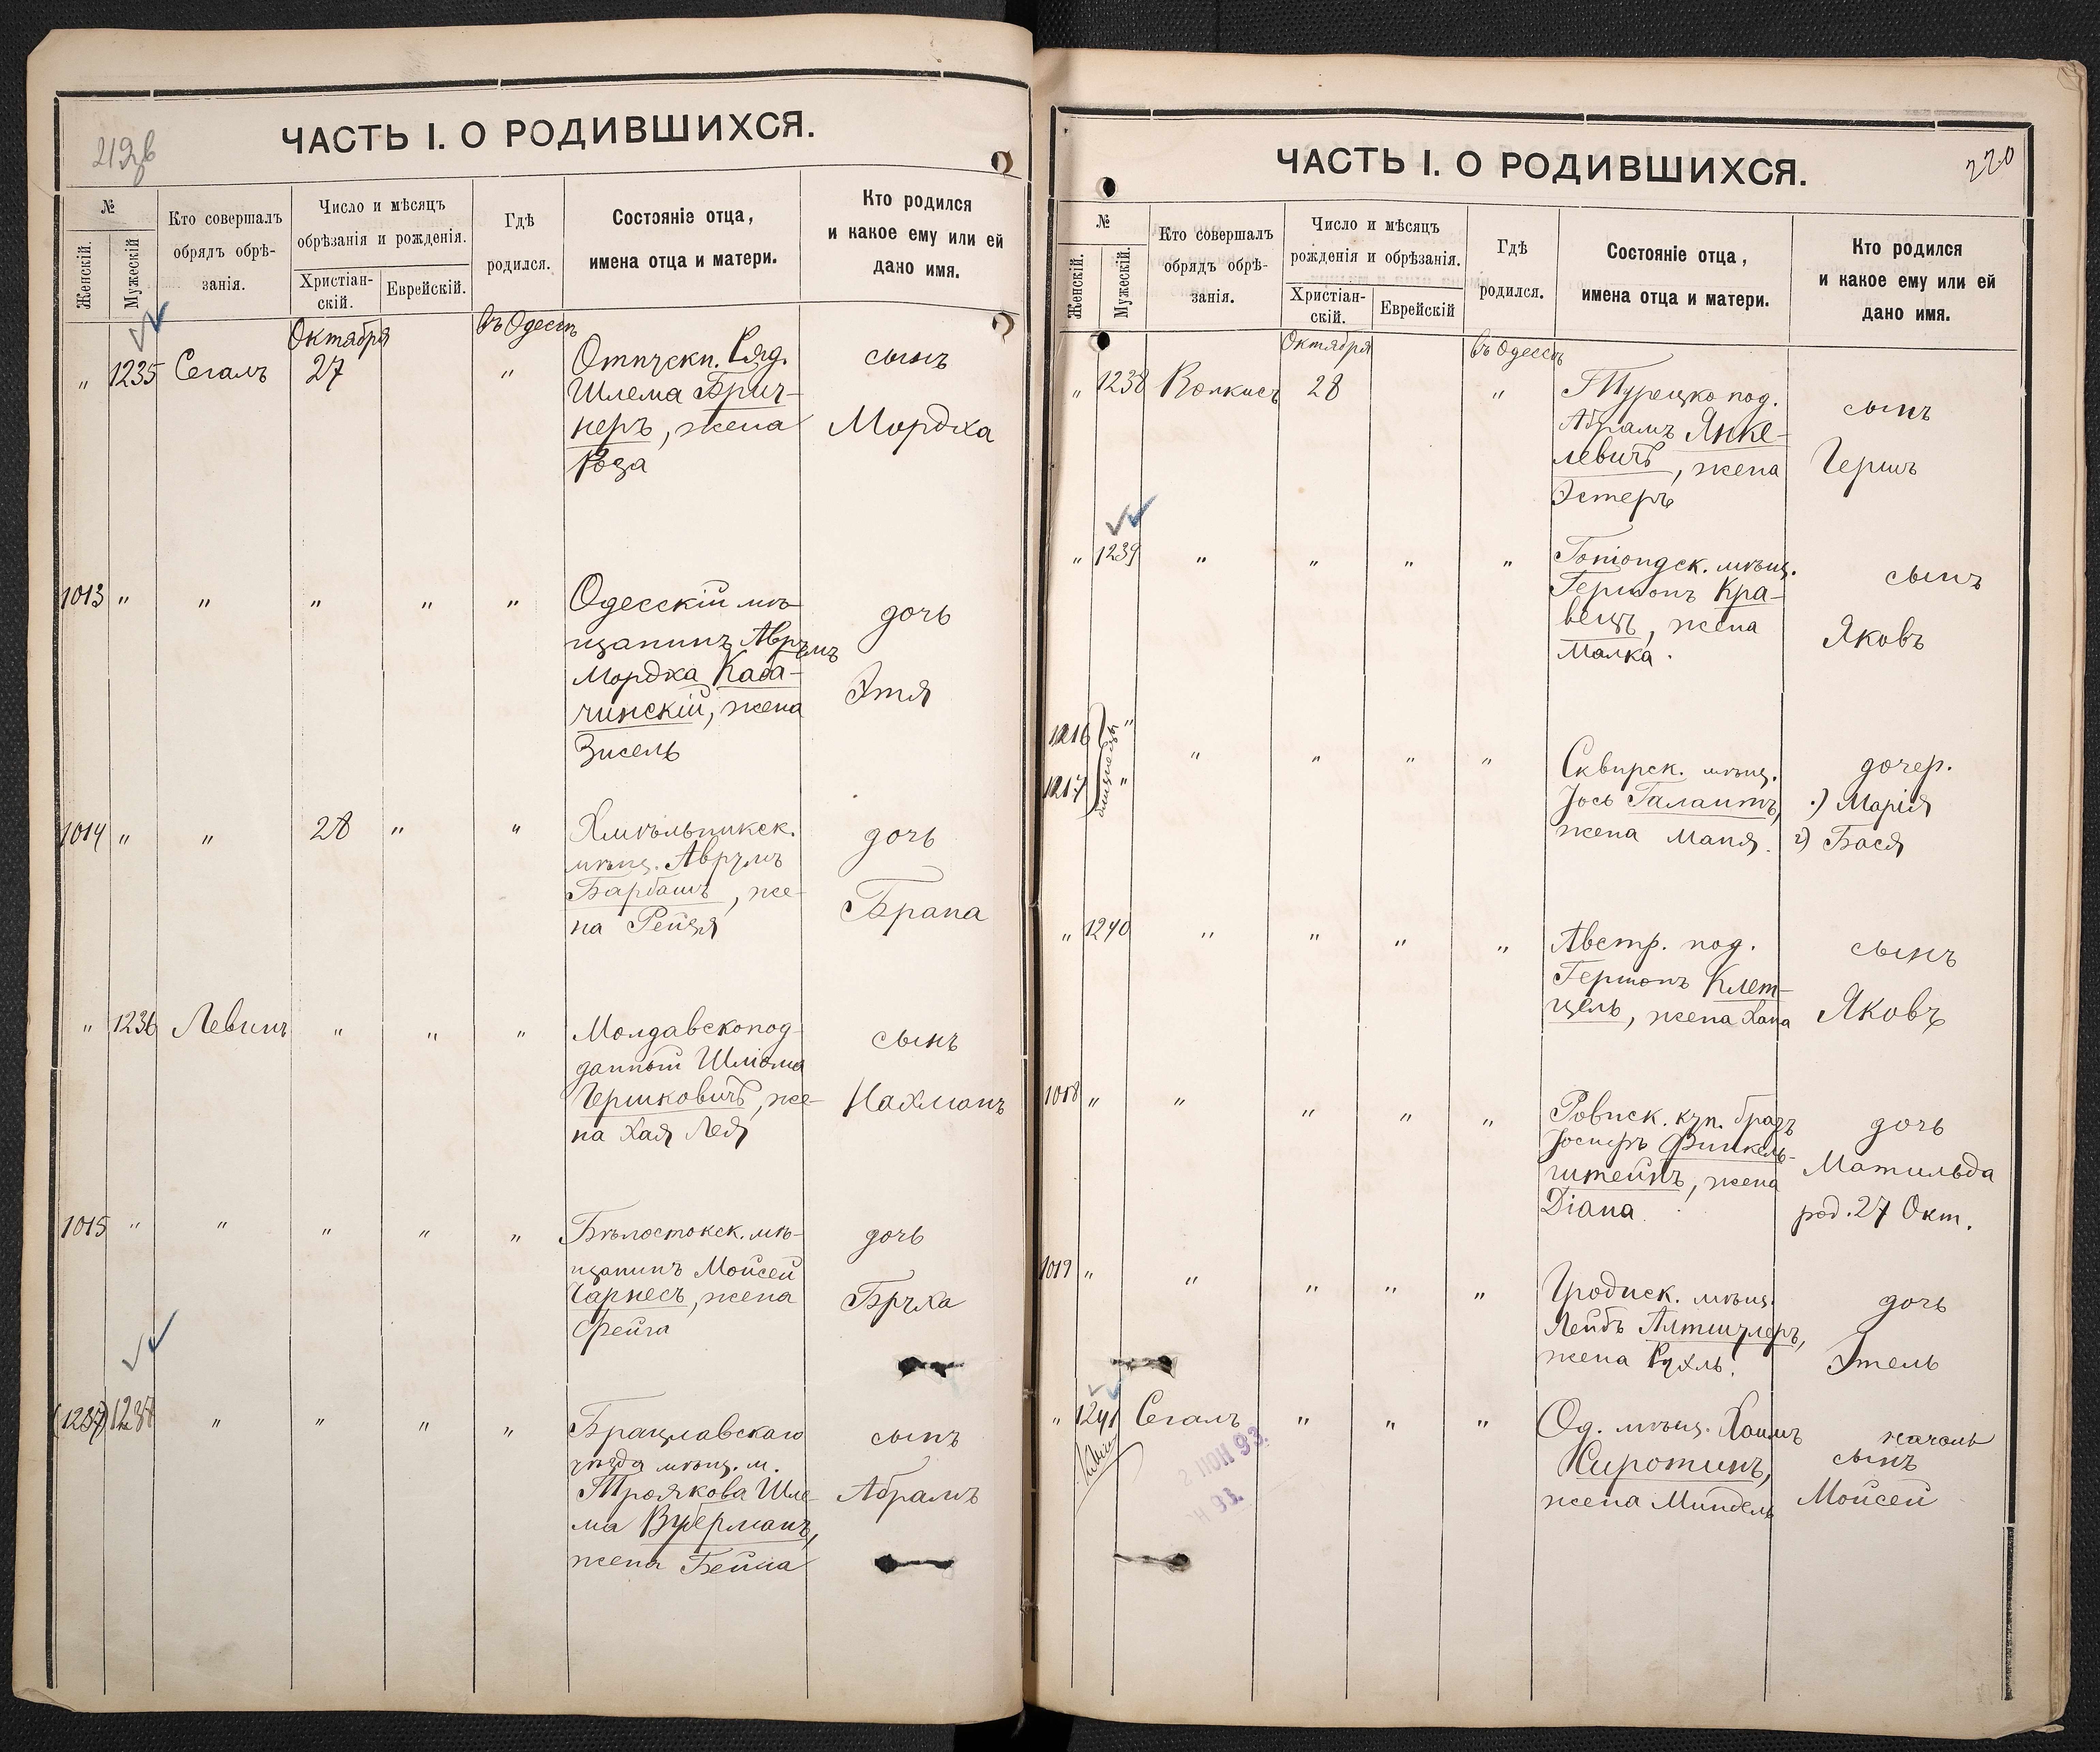 219 об
ЧАСТЬ I. О РОДИВШИХСЯ.
№
Женскій.
Мужескій
Кто совершалъ
обрядъ обрѣ-
занія.
Число и мѣсяцъ
обрѣзанія и рожденія.
Христіан-
скій.
Еврейскій.
Гдѣ
родился.
Состояніе отца,
имена отца и матери.
Кто родился
и какое ему или ей
дано имя.
Октября
въ Одессѣ
" 1235 Сегалъ 27 "
Отпускн. Ряд.
Шлема Брич-
неръ, жена
Роза
сынъ
Мордха
1013 " " " " "
Одесскій мѣ-
щанинъ Аврумъ
Мордха Каба-
чинскій, жена
Зисель
дочь
Этя
1014 " " 28 " "
Хмѣльникск.
мѣщ. Аврумъ
Барбашъ, же-
на Рейзя
дочь
Брана
" 1236 Левинъ " " "
Молдавскопод-
данный Шліома
Гершковичъ, же-
на Хая Лея
сынъ
Нахманъ
1015 " " " " "
Бѣлостокск. мѣ-
щанинъ Мойсей
Чарнесъ, жена
Фрейга
дочь
Бруха
(1237) 1237 " " " "
Брацлавскаго
уѣзда мѣщ. м.
Троякова Шле-
ма Вуберманъ,
жена Бейла
сынъ
Абрамъ
220
ЧАСТЬ I. О РОДИВШИХСЯ.
№
Женскій.
Мужескій.
Кто совершалъ
обрядъ обрѣ-
занія.
Число и мѣсяцъ
рожденія и обрѣзанія.
Христіан-
скій.
Еврейскій
Гдѣ
родился.
Состояніе отца,
имена отца и матери.
Кто родился
и какое ему или ей
дано имя.
Октября
въ Одессѣ
" 1238 28 "
Турецко под.
Абрамъ Янке-
левичъ, жена
Эстеръ
сынъ
Гершъ
" 1239 " " " "
Гоніондск. мѣщ.
Гершонъ Кра-
вецъ, жена
Малка.
сынъ
Яковъ
1216 "
1217 "
близнецы
" " " "
Сквирск. мѣщ.
Іось Галантъ,
жена Маня.
дочер.
1) Марія
2) Бася
" 1240 " " " "
Австр. под.
Гершонъ Клет-
цель, жена Хана
сынъ
Яковъ
1018 " " " " "
Ровнск. куп. братъ
Іосифъ Финкель-
штейнъ, жена
Діана
дочь
Матильда
род. 27 Окт.
1019 " " " " "
Гродиск. мѣщ.
Лейбъ Алтшулеръ,
жена Рухль.
дочь
Этель
" 1241 Сегалъ " " "
Од. мѣщ. Хаимъ
Сиротинъ,
жена Миндель
сынъ
Мойсей
2 ІЮН 93.
93.